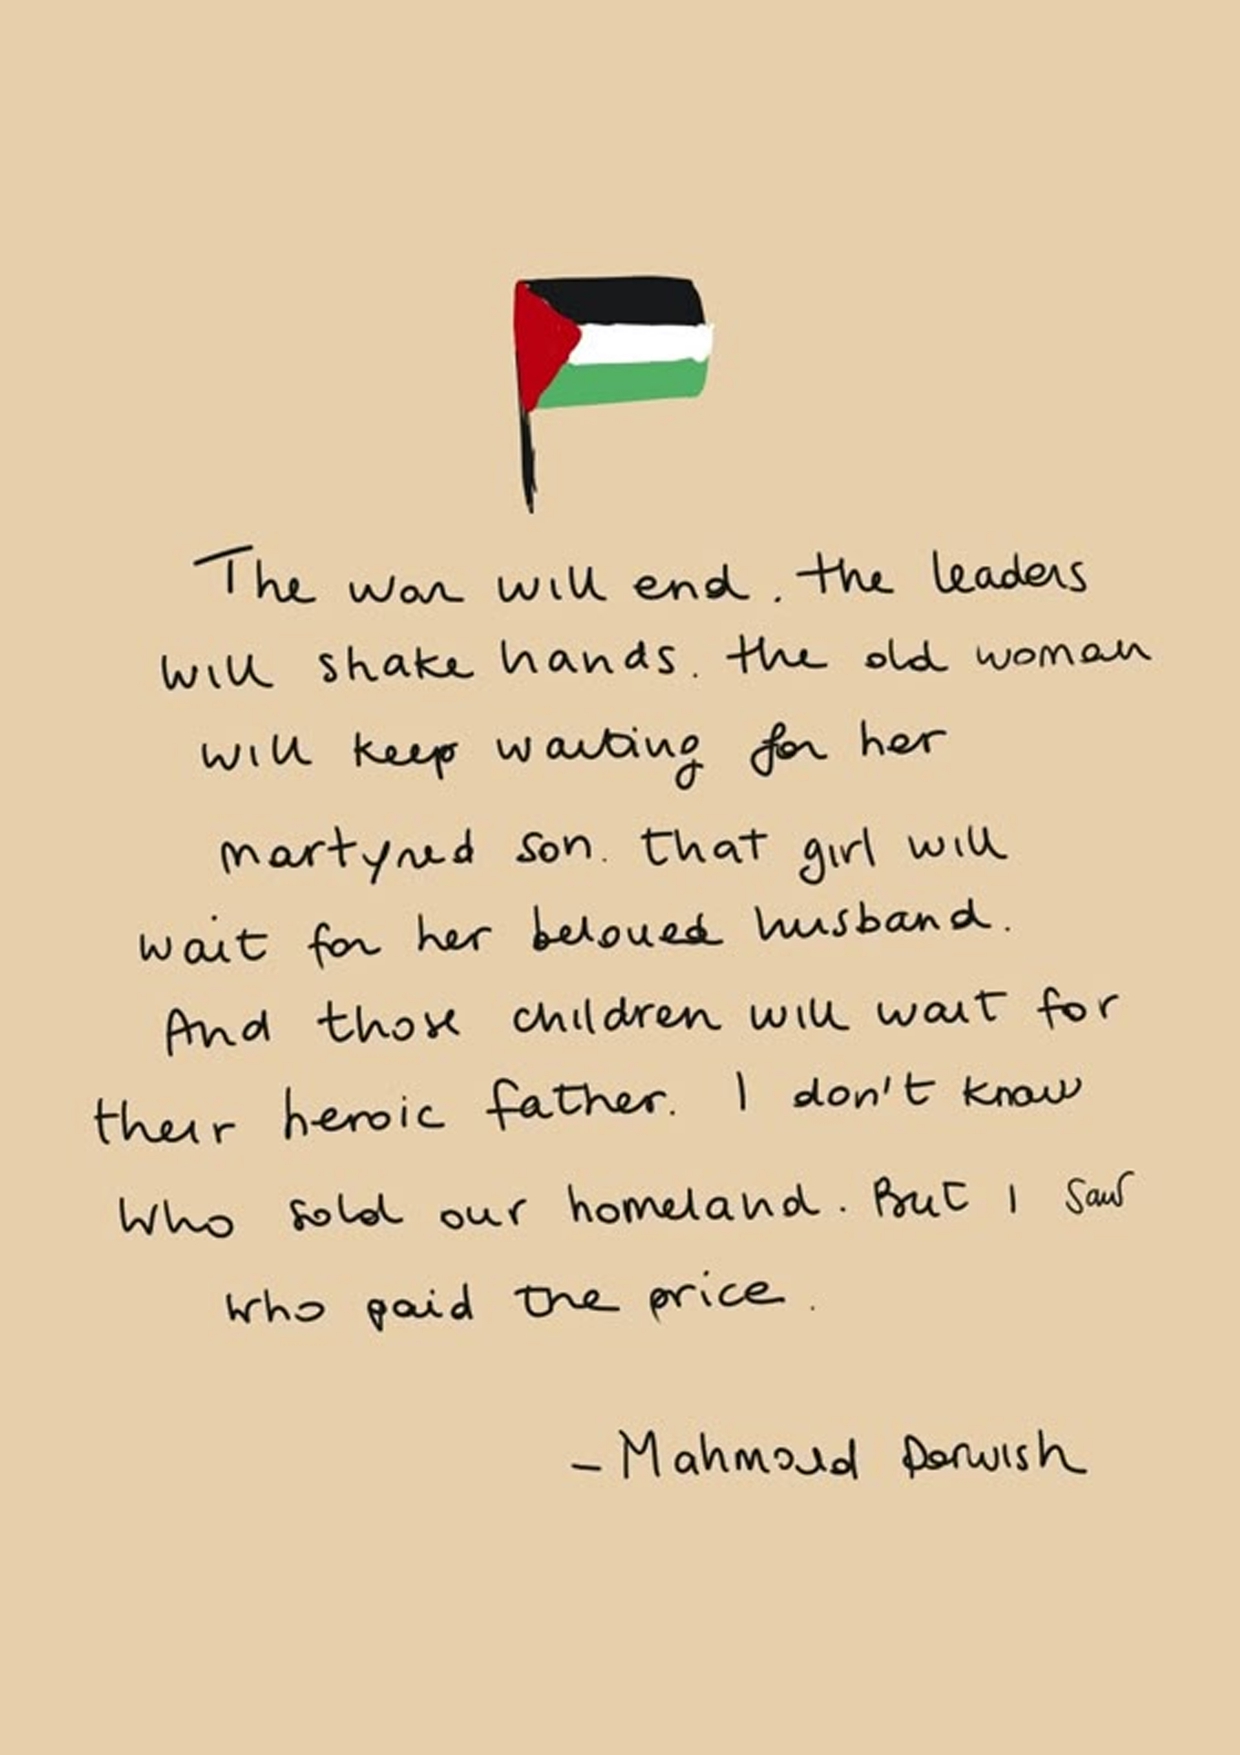 The war will end. the leaders
will shake hands. the old woman
will keep waiting for her
martyred son. that girl will
wait for her beloved husband.
And those children will wait for
their heroic father. I don't know
who sold our homeland. But I saw
who paid the price.
- Mahmoud Darwish